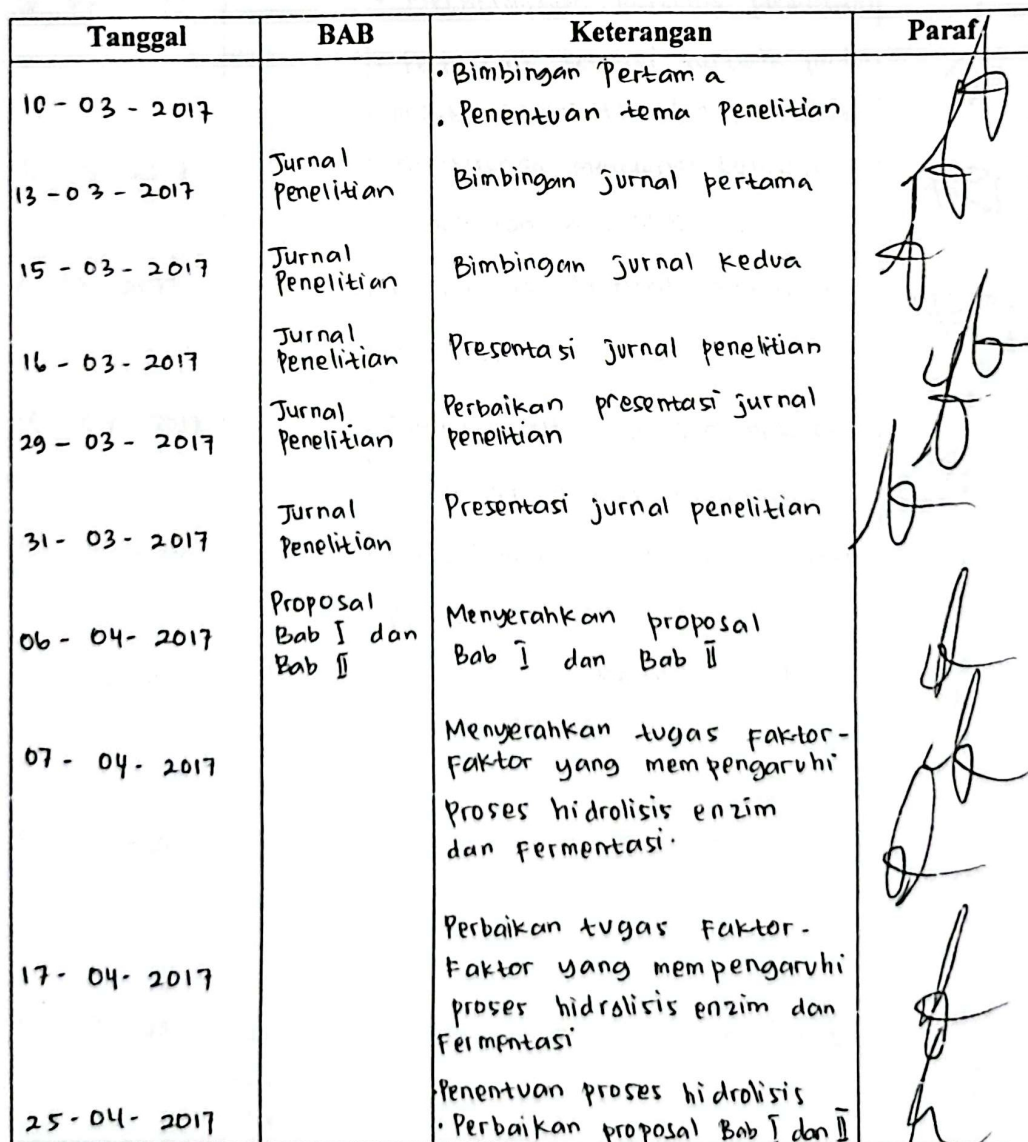 Tanggal BAB Keterangan Paraf
10 - 03 - 2017
• Bimbingan Pertama
• Penentuan tema Penelitian
13 - 03 - 2017
Jurnal
Penelitian
Bimbingan jurnal pertama
15 - 03 - 2017
Jurnal
Penelitian
Bimbingan jurnal kedua
16 - 03 - 2017
Jurnal
Penelitian
Presentasi jurnal penelitian
29 - 03 - 2017
Jurnal
Penelitian
Perbaikan presentasi jurnal
penelitian
31 - 03 - 2017
Jurnal
Penelitian
Presentasi jurnal penelitian
06 - 04 - 2017
Proposal
Bab I dan
Bab II
Menyerahkan proposal
Bab I dan Bab II
07 - 04 - 2017
Menyerahkan tugas Faktor-
Faktor yang mempengaruhi
Proses hidrolisis enzim
dan Fermentasi.
17 - 04 - 2017
Perbaikan tugas Faktor-
Faktor yang mempengaruhi
proses hidrolisis enzim dan
Fermentasi
25 - 04 - 2017
• Penentuan proses hidrolisis
• Perbaikan proposal Bab I dan II